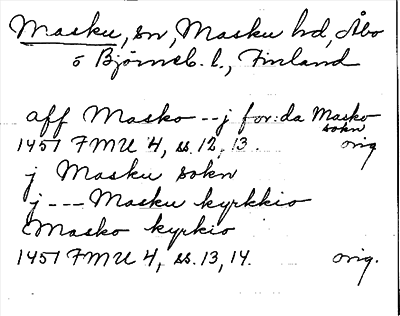 Masku, sn, Masku hd, Åbo
o Björneb. l., Finland
aff Masko -- j for:da Masko
sokn
1451 FMU 4, ss. 12, 13. orig
j Masku sokn
j --- Masku kyrkkio
Masko kyrkio
1451 FMU 4, ss. 13, 14. orig.